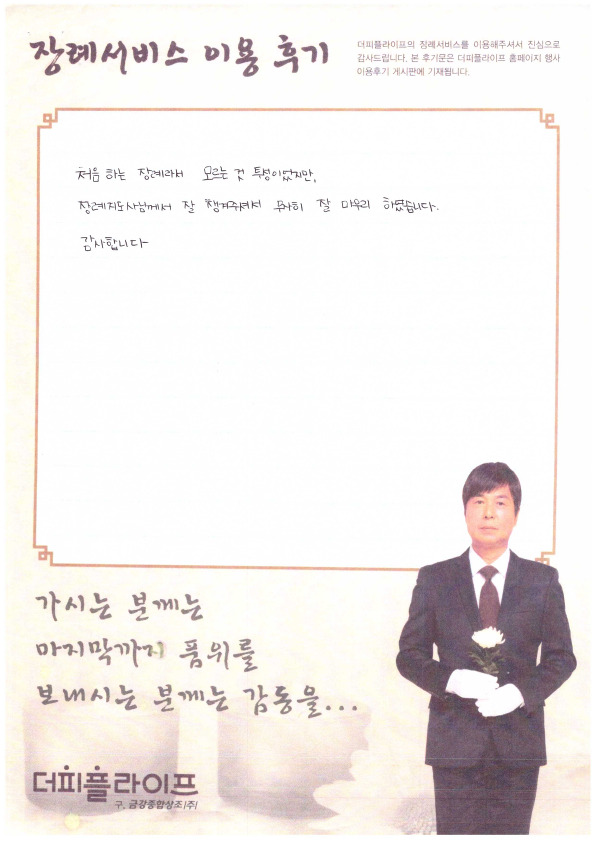 장례서비스 이용 후기
더피플라이프의 장례서비스를 이용해주셔서 진심으로
감사드립니다. 본 후기문은 더피플라이프 홈페이지 행사
이용후기 게시판에 기재됩니다.
처음 하는 장례라서 모르는 것 투성이었지만,
장례지도사님께서 잘 챙겨주셔서 무사히 잘 마무리 하였습니다.
감사합니다
가시는 분께는
마지막까지 품위를
보내시는 분께는 감동을...
더피플라이프
구. 금강종합상조(주)